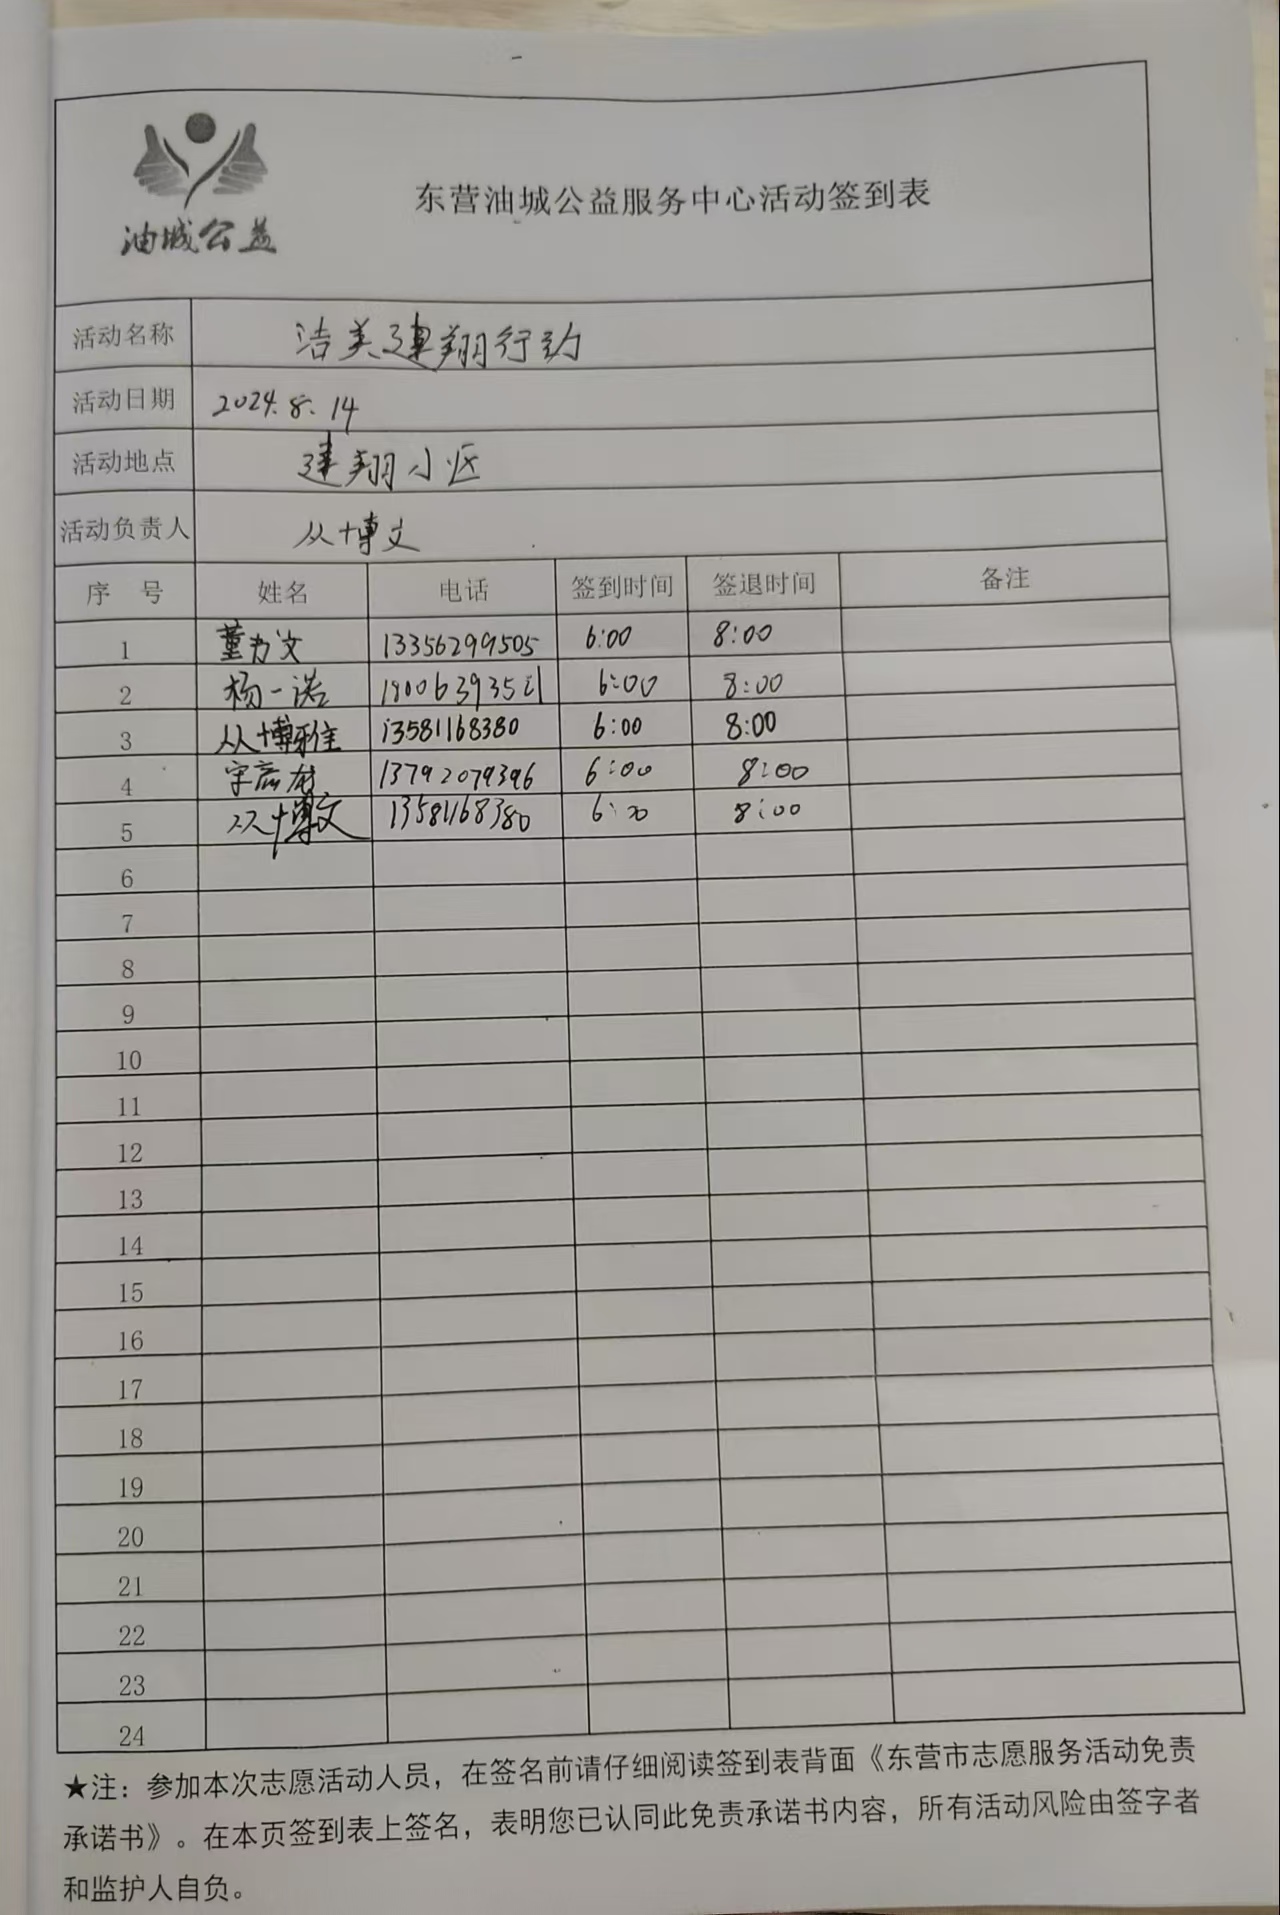 油城公益
东营油城公益服务中心活动签到表
活动名称 洁美建翔行动
活动日期 2024.8.14
活动地点 建翔小区
活动负责人 从博文
序 号 姓名 电话 签到时间 签退时间 备注
1 董力文 13356299505 6:00 8:00
2 杨一诺 6:00 8:00
3 从博雅 13581168380 6:00 8:00
4 13792079396 6:00 8:00
5 从博文 13581168380 6:00 8:00
6
7
8
9
10
11
12
13
14
15
16
17
18
19
20
21
22
23
24
★注：参加本次志愿活动人员，在签名前请仔细阅读签到表背面《东营市志愿服务活动免责
承诺书》。在本页签到表上签名，表明您已认同此免责承诺书内容，所有活动风险由签字者
和监护人自负。